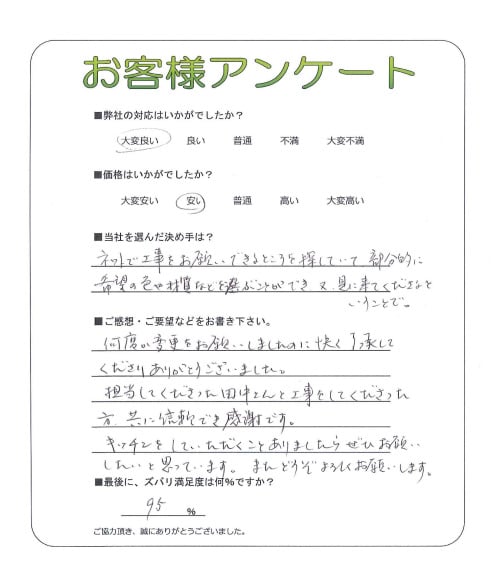 お客様アンケート
■弊社の対応はいかがでしたか？
大変良い 良い 普通 不満 大変不満
■価格はいかがでしたか？
大変安い 安い 普通 高い 大変高い
■当社を選んだ決め手は？
ネットで工事をお願いできるところを探していて 部分的に
希望の色や材質などを選ぶことができ 又、見に来てくださると
いうことで。
■ご感想・ご要望などをお書き下さい。
何度か変更をお願いしましたのに快く了承して
くださりありがとうございました。
担当してくださった田中さんと工事をしてくださった
方、共に信頼でき感謝です。
キッチンをしていただくことありましたらぜひお願い
したいと思っています。 またどうぞよろしくお願いします。
■最後に、ズバリ満足度は何%ですか？
95 %
ご協力頂き、誠にありがとうございました。